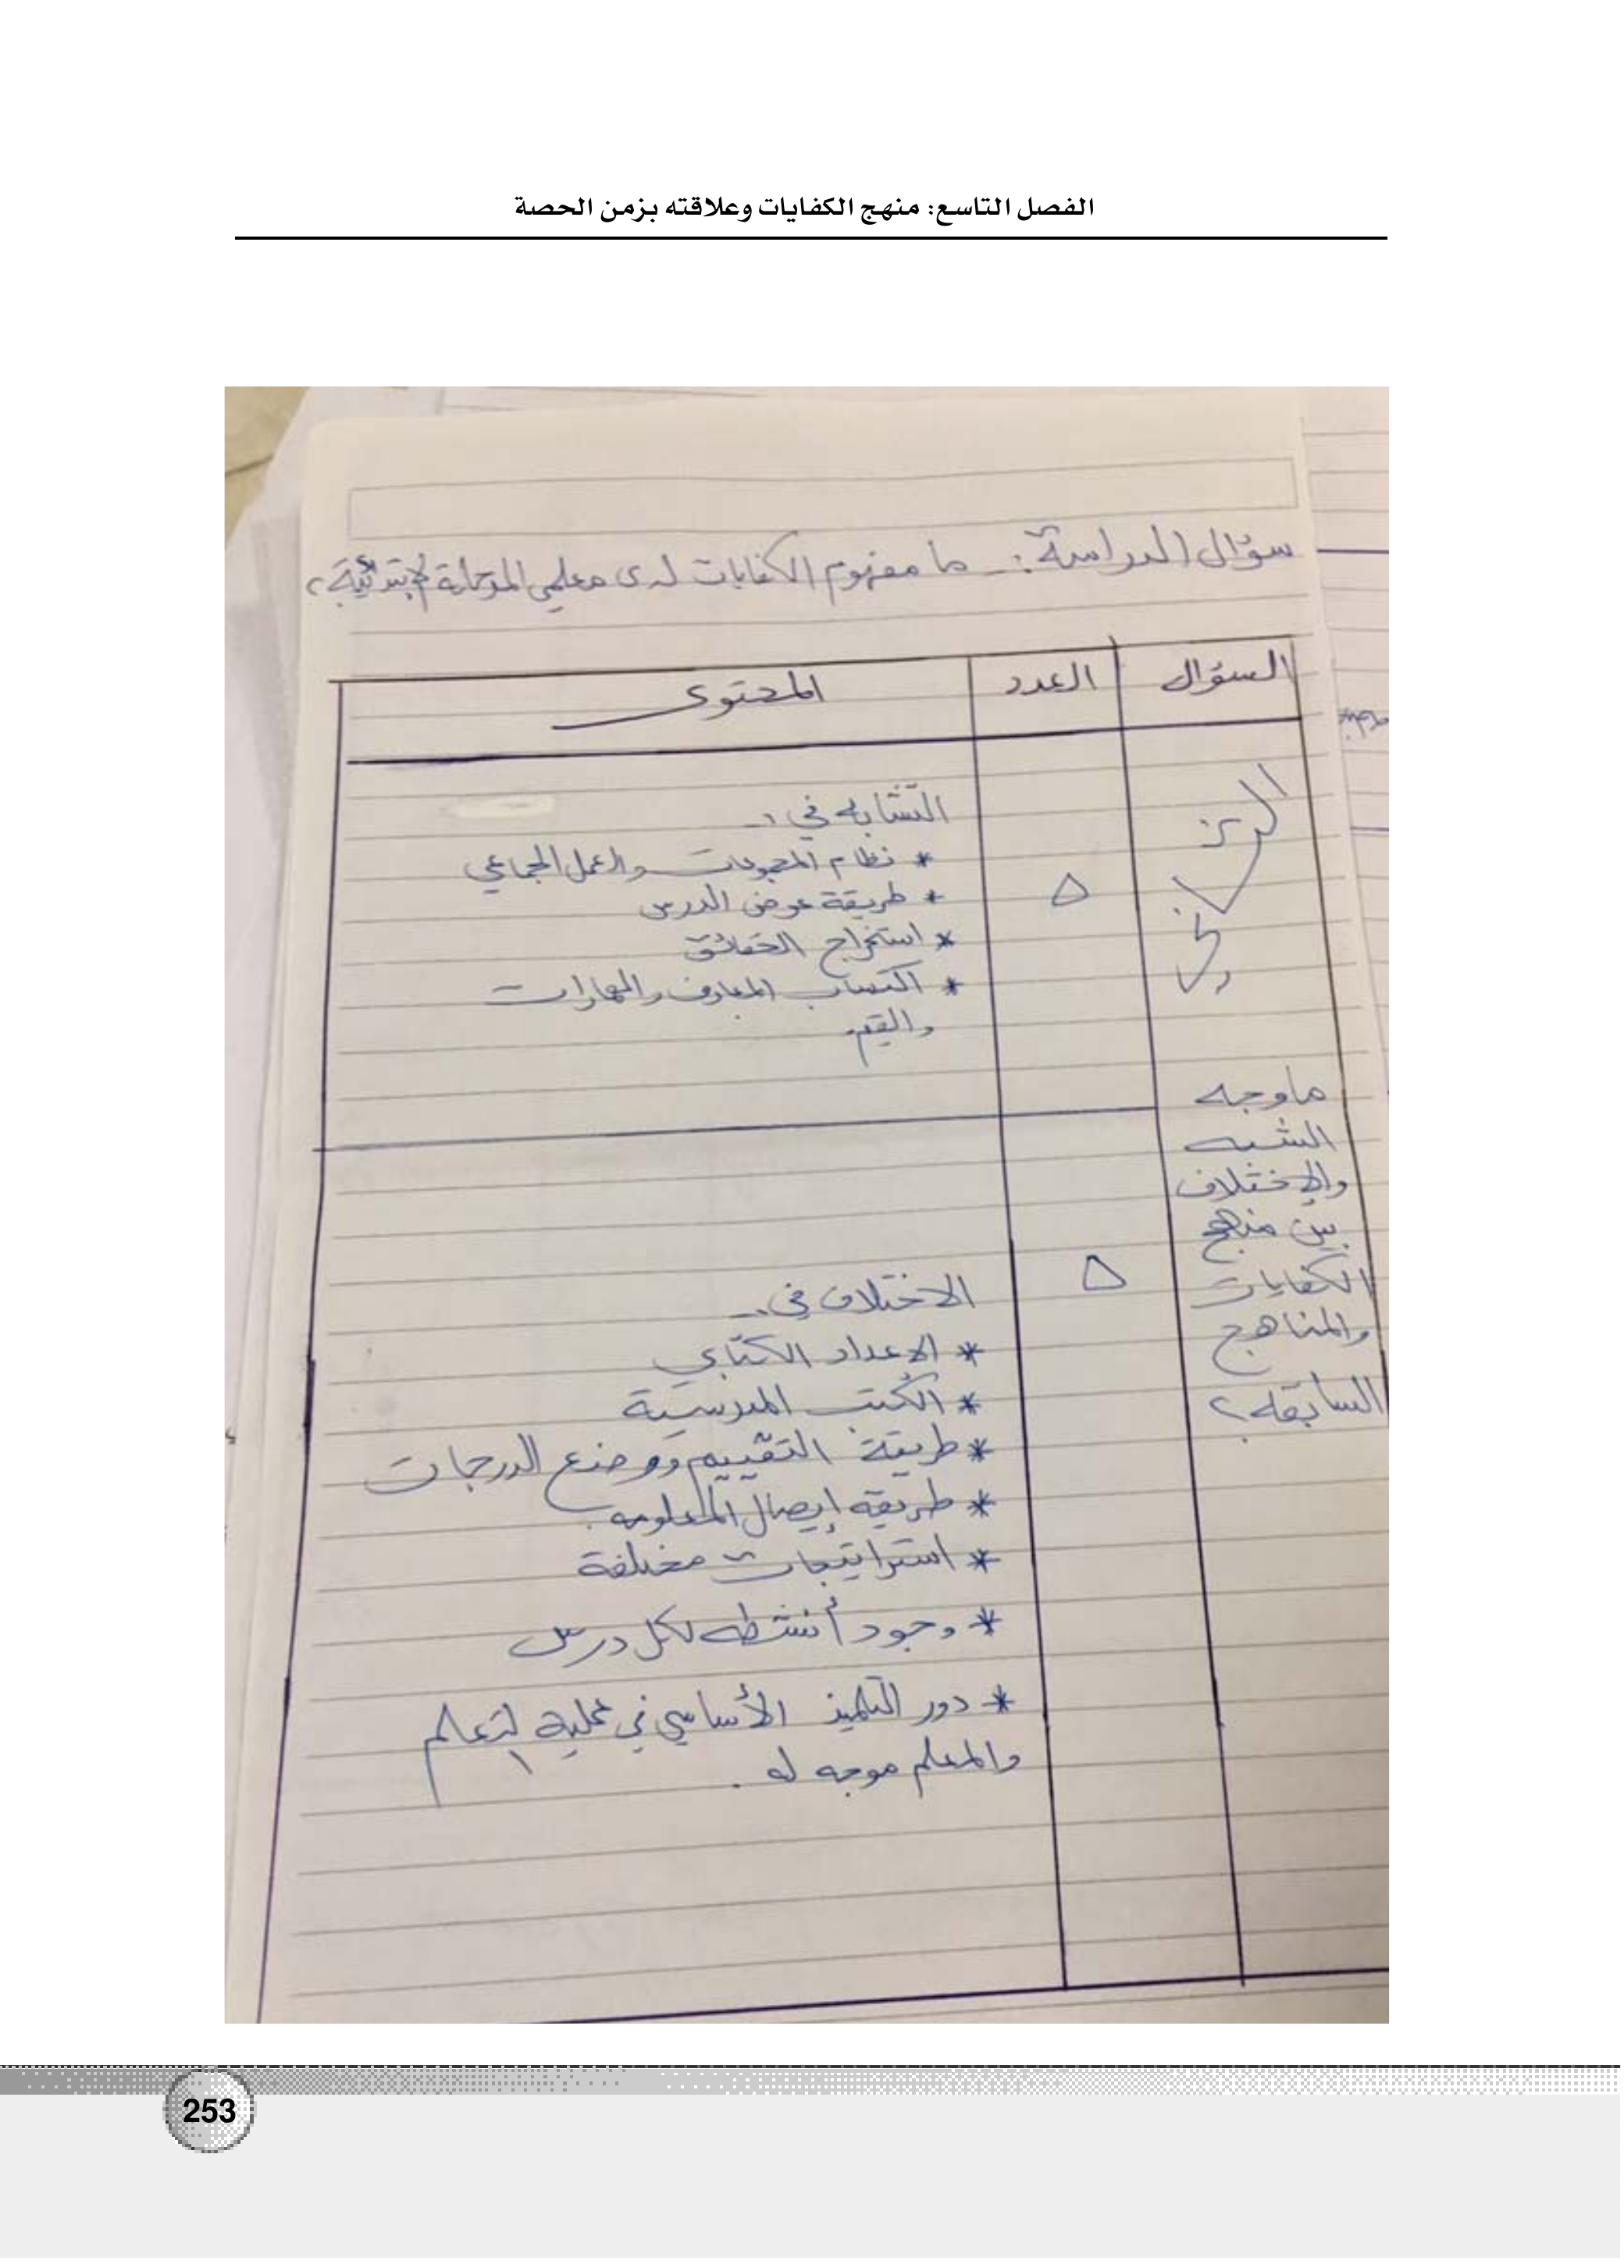 الفصل التاسع: منهج الكفايات وعلاقته بزمن الحصة
سؤال الدراسة :- ما مفهوم الكفايات لدى معلمي المرحلة الابتدائية؟
السؤال العدد المحتوى
التشابه في :-
* نظام المجموعات والعمل الجماعي
* طريقة عرض الدرس
* استخراج الحقائق
* اكتساب المعارف والمهارات
والقيم.
٥
ما وجه
الشبه
والإختلاف
بين منهج
الكفايات
والمناهج
السابقه؟
٥
الاختلاف في :-
* الاعداد الكتابي
* الكتب المدرسية
* طريقة التقييم ووضع الدرجات
* طريقه إيصال المعلومه
* استراتيجات مختلفة
* وجود أنشطه لكل درس
* دور التلميذ الأساسي في عملية التعلم
والمعلم موجه له .
253